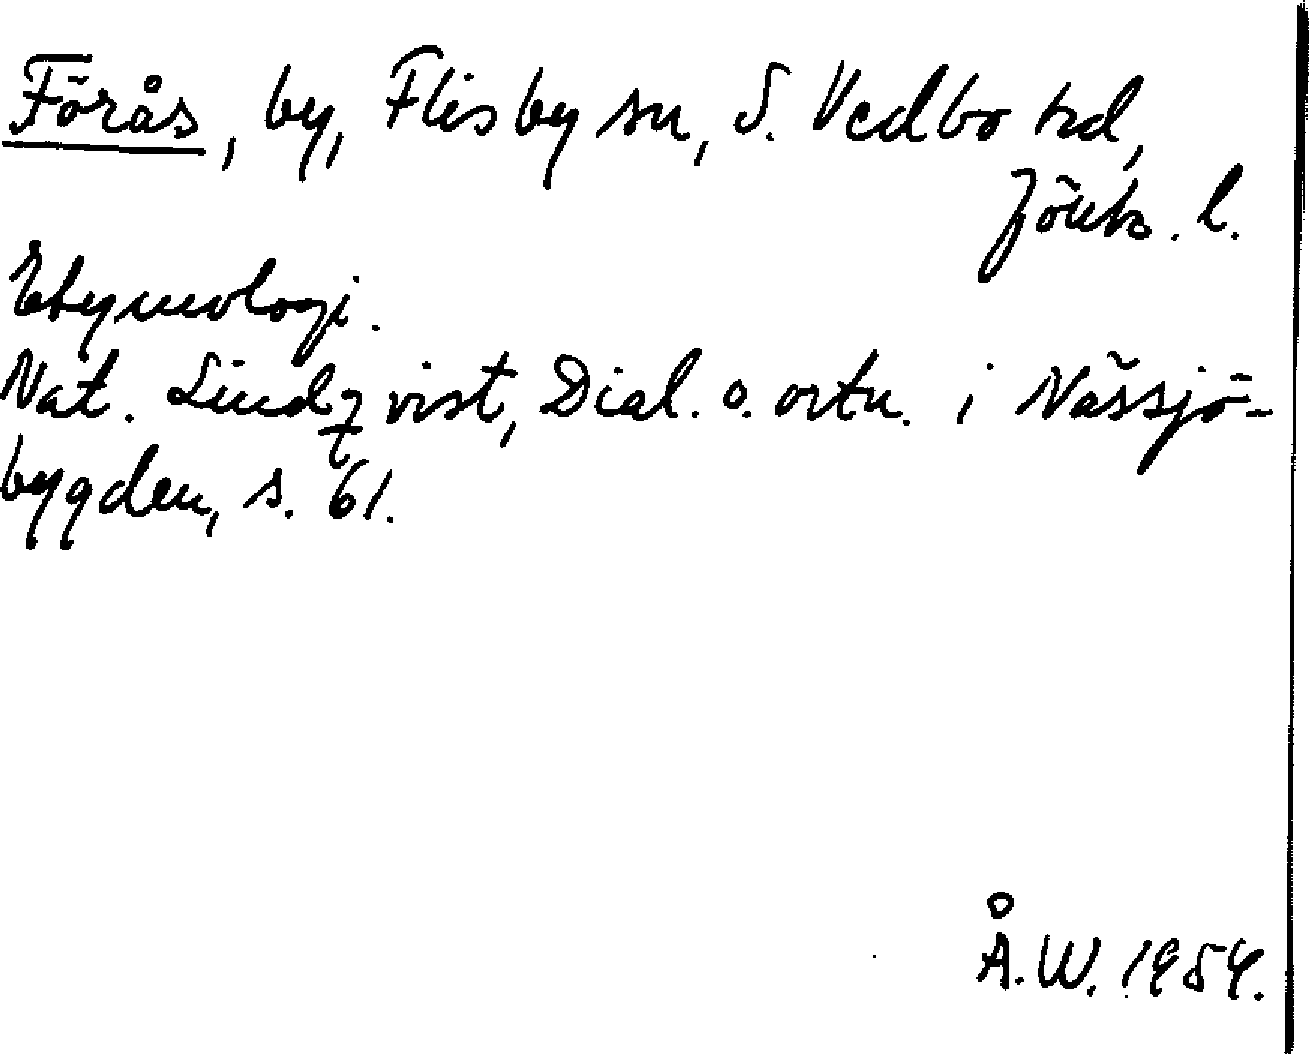 Förås, by, Flisby sn, S. Vedbo hd,
Jönk. l.
Etymologi.
Nat. Lindqvist, Dial. o. ortn. i Nässjö-
bygden, s. 61.
Å.W. 1954.